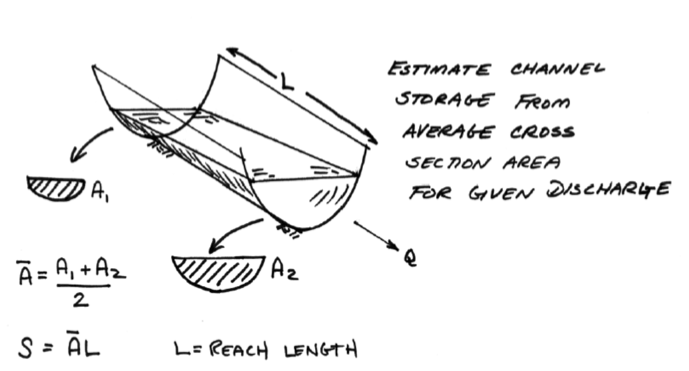 L
ESTIMATE CHANNEL
STORAGE FROM
AVERAGE CROSS
SECTION AREA
FOR GIVEN DISCHARGE
A₁
Q
A₂
Ā = A₁ + A₂
2
S = ĀL
L = REACH LENGTH